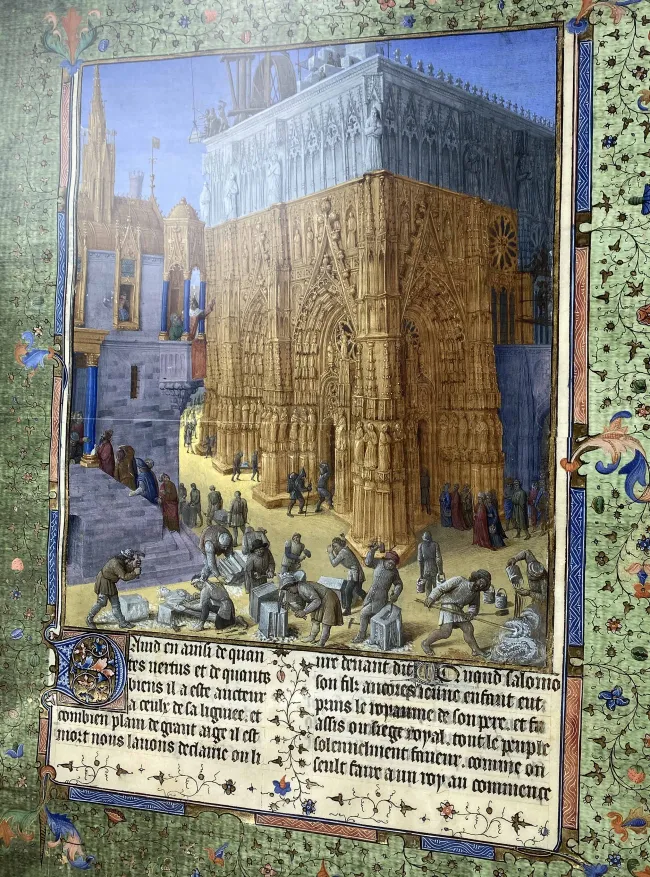 Dauid en ainsi de quan
tes uertus et de quants
biens il a este aucteur
a ceulx de sa lignee. et
combien plain de grant aige il est
mort nous lauons declairie ou li
ure deuant dit Quand salomo
son filz encores ieune enfant eut
prins le royaume de son pere. et fu
assis ou siege royal. tout le peuple
solennelment faueur. comme on
seult faire a un roy au commence